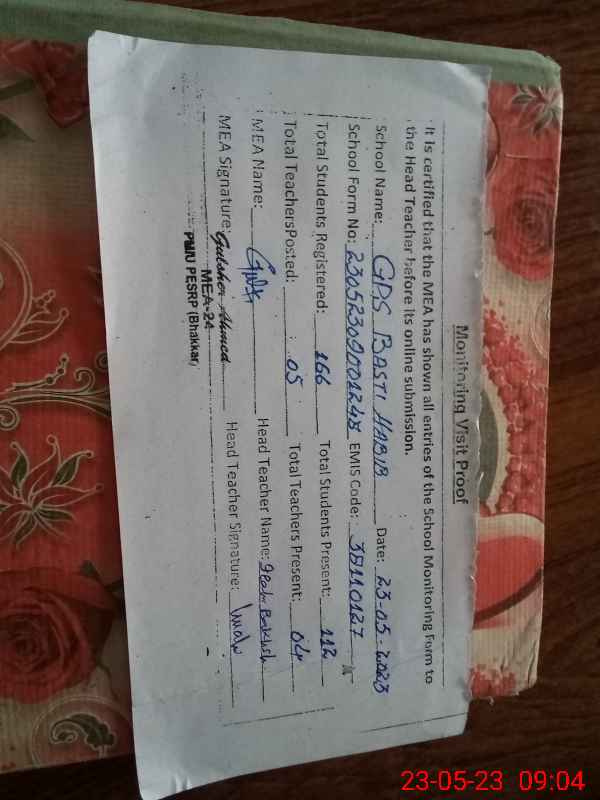 Monitoring Visit Proof
It is certified that the MEA has shown all entries of the School Monitoring Form to
the Head Teacher before its online submission.
School Name: GPS BASTI HABIB Date: 23-05-2023
School Form No: EMIS Code: 38110127
Total Students Registered: 166 Total Students Present: 112
Total Teachers Posted: 05 Total Teachers Present: 04
MEA Name: Head Teacher Name: Bakhsh
MEA Signature: Gulsher Ahmed Head Teacher Signature:
MEA-24
PMIU PESRP (Bhakkar)
23-05-23 09:04